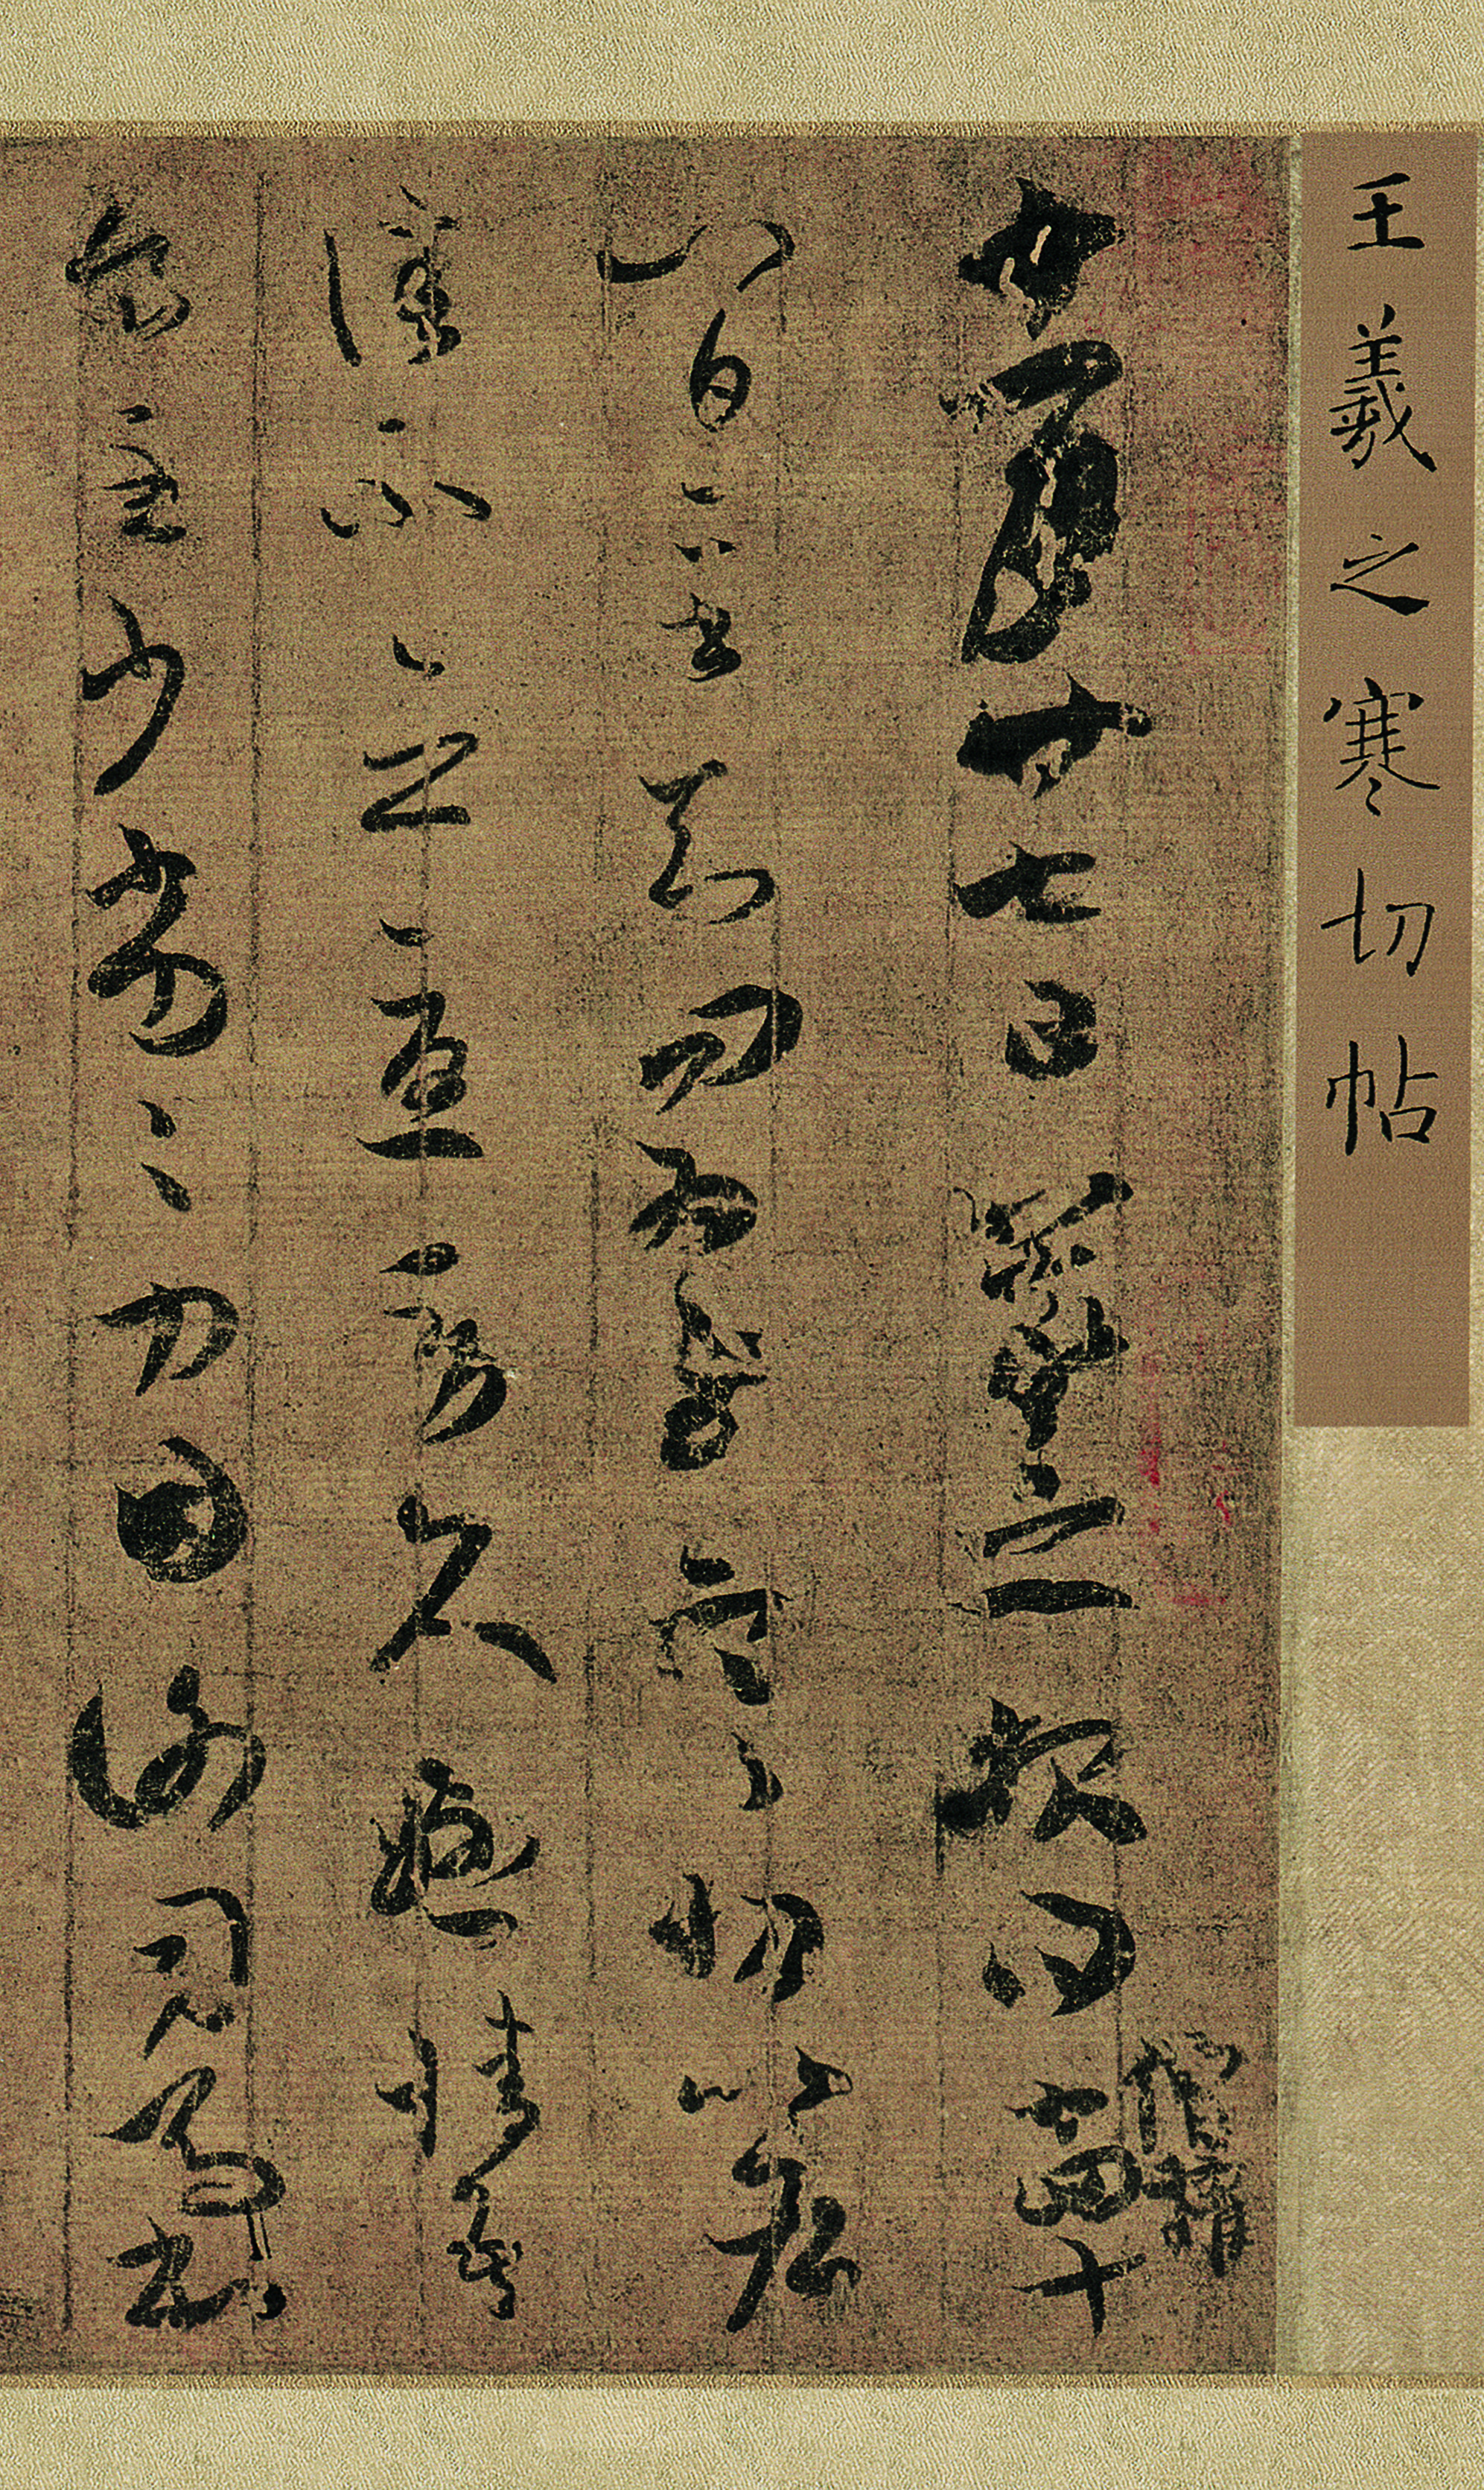 王羲之寒切帖
十一月廿七日羲之報得十四十
僧權
八日二書知問為慰寒切比各
佳不念憂勞久懸情吾
食至少劣〻力因謝司馬書